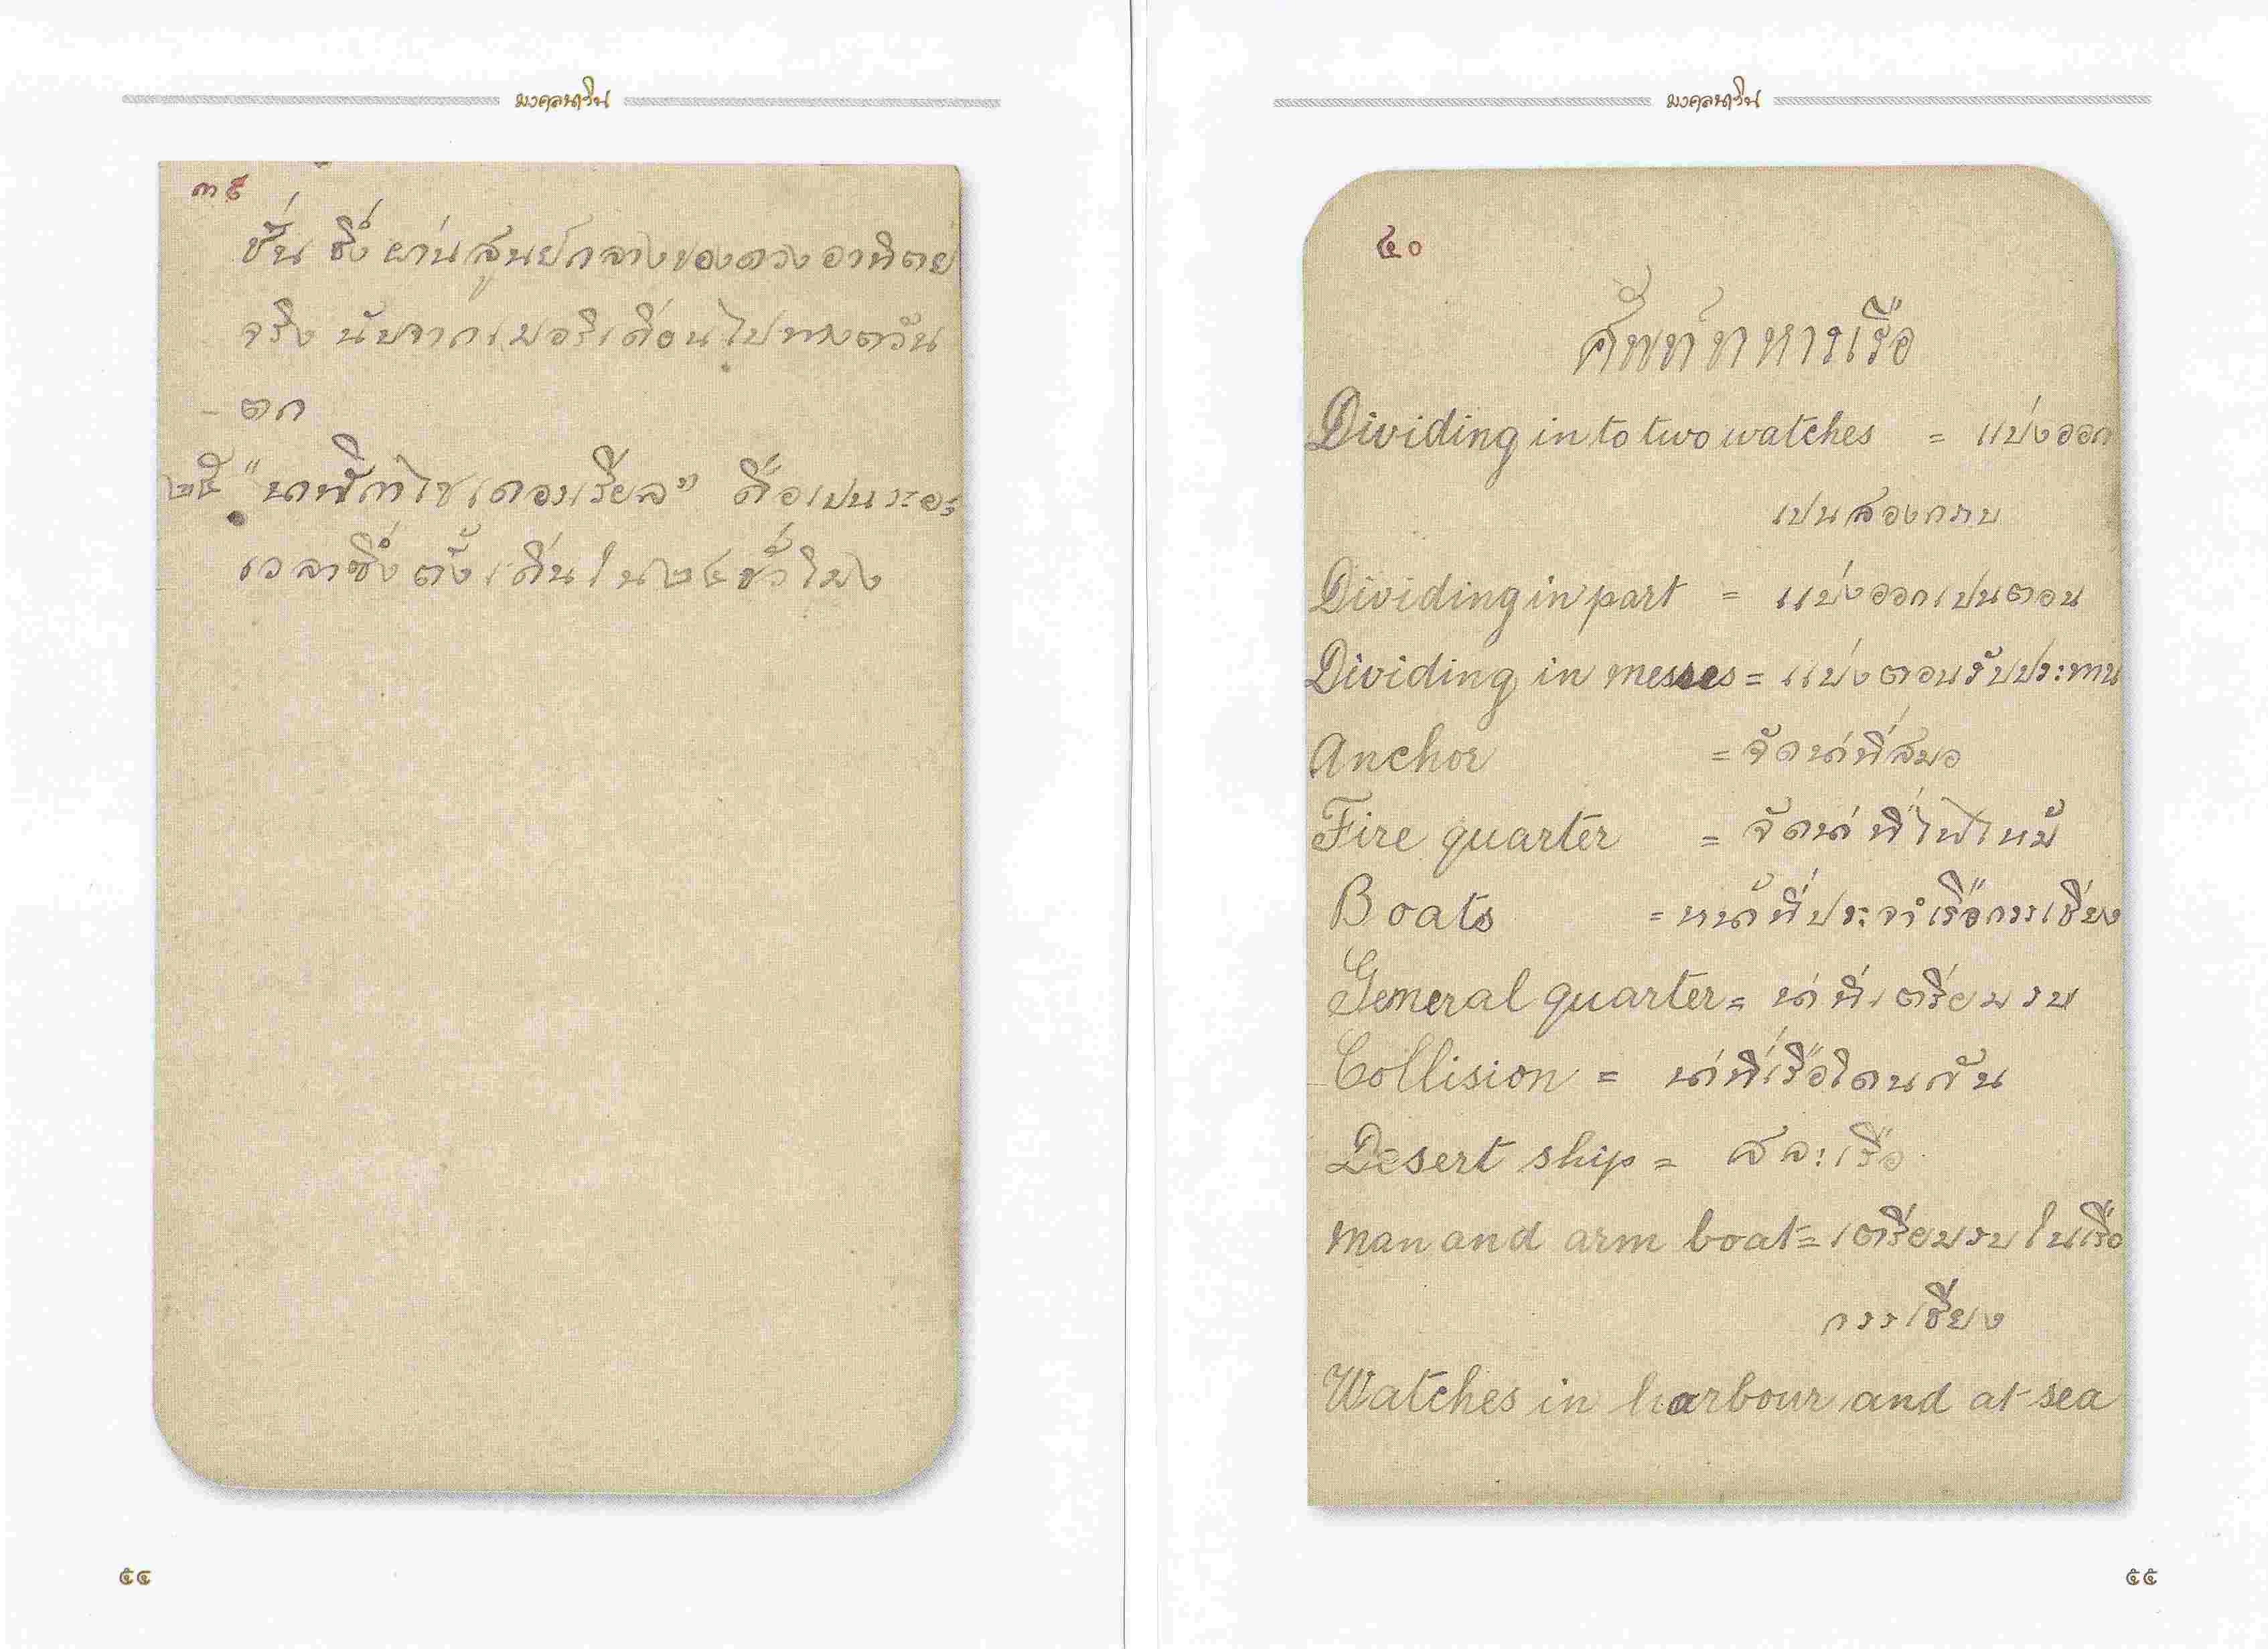 มงคลนาวิน
๓๙
ชั่น ซึ่งผ่านสูนย์กลางของดวงอาทิตย
จริง นับจากเมอริเดี่อนไปทางตวัน
ตก
๒๕ "นาฬิกาไซเดอเรียล" คือเปนระยะ
เวลาซึ่งตั้งเดินใน ๒๔ ชั่วโมง
๕๔
มงคลนาวิน
๔๐
ศัพท์ทหารเรือ
Dividing in to two watches = แบ่งออก
เปนสองกราบ
Dividing in part = แบ่งออกเปนตอน
Dividing in messes = แบ่งตอนรับประทาน
Anchor = จัดน่าที่สมอ
Fire quarter = จัดน่าที่ไฟไหม้
Boats = หน้าที่ประจำเรือกรรเชียง
General quarter = น่าที่เตรียมรบ
Collision = น่าที่เรือโดนกัน
Desert ship = สละเรือ
Man and arm boat = เตรียมรบในเรือ
กรรเชียง
Watches in harbour and at sea
๕๕